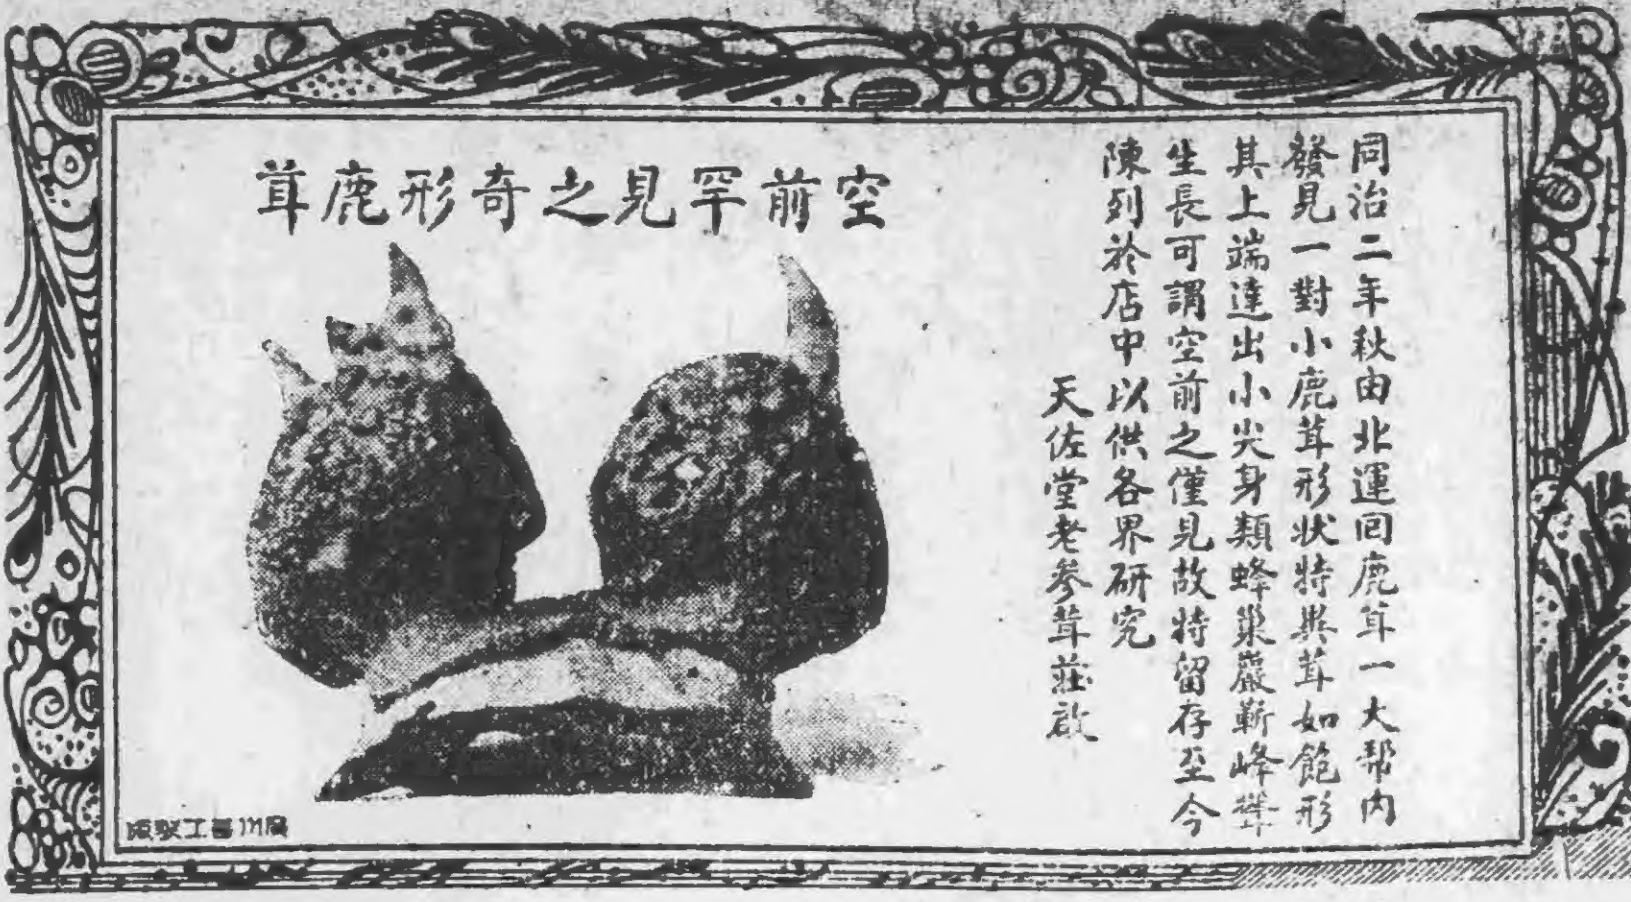 空前罕見之奇形鹿茸
同治二年秋由北運回鹿茸一大帮内
發見一對小鹿茸形狀特異茸如飽形
其上端達出小尖身類蜂巢巖嶄峰聳
生長可謂空前之僅見故特留存至今
陳列於店中以供各界研究
天佐堂老參茸莊啟